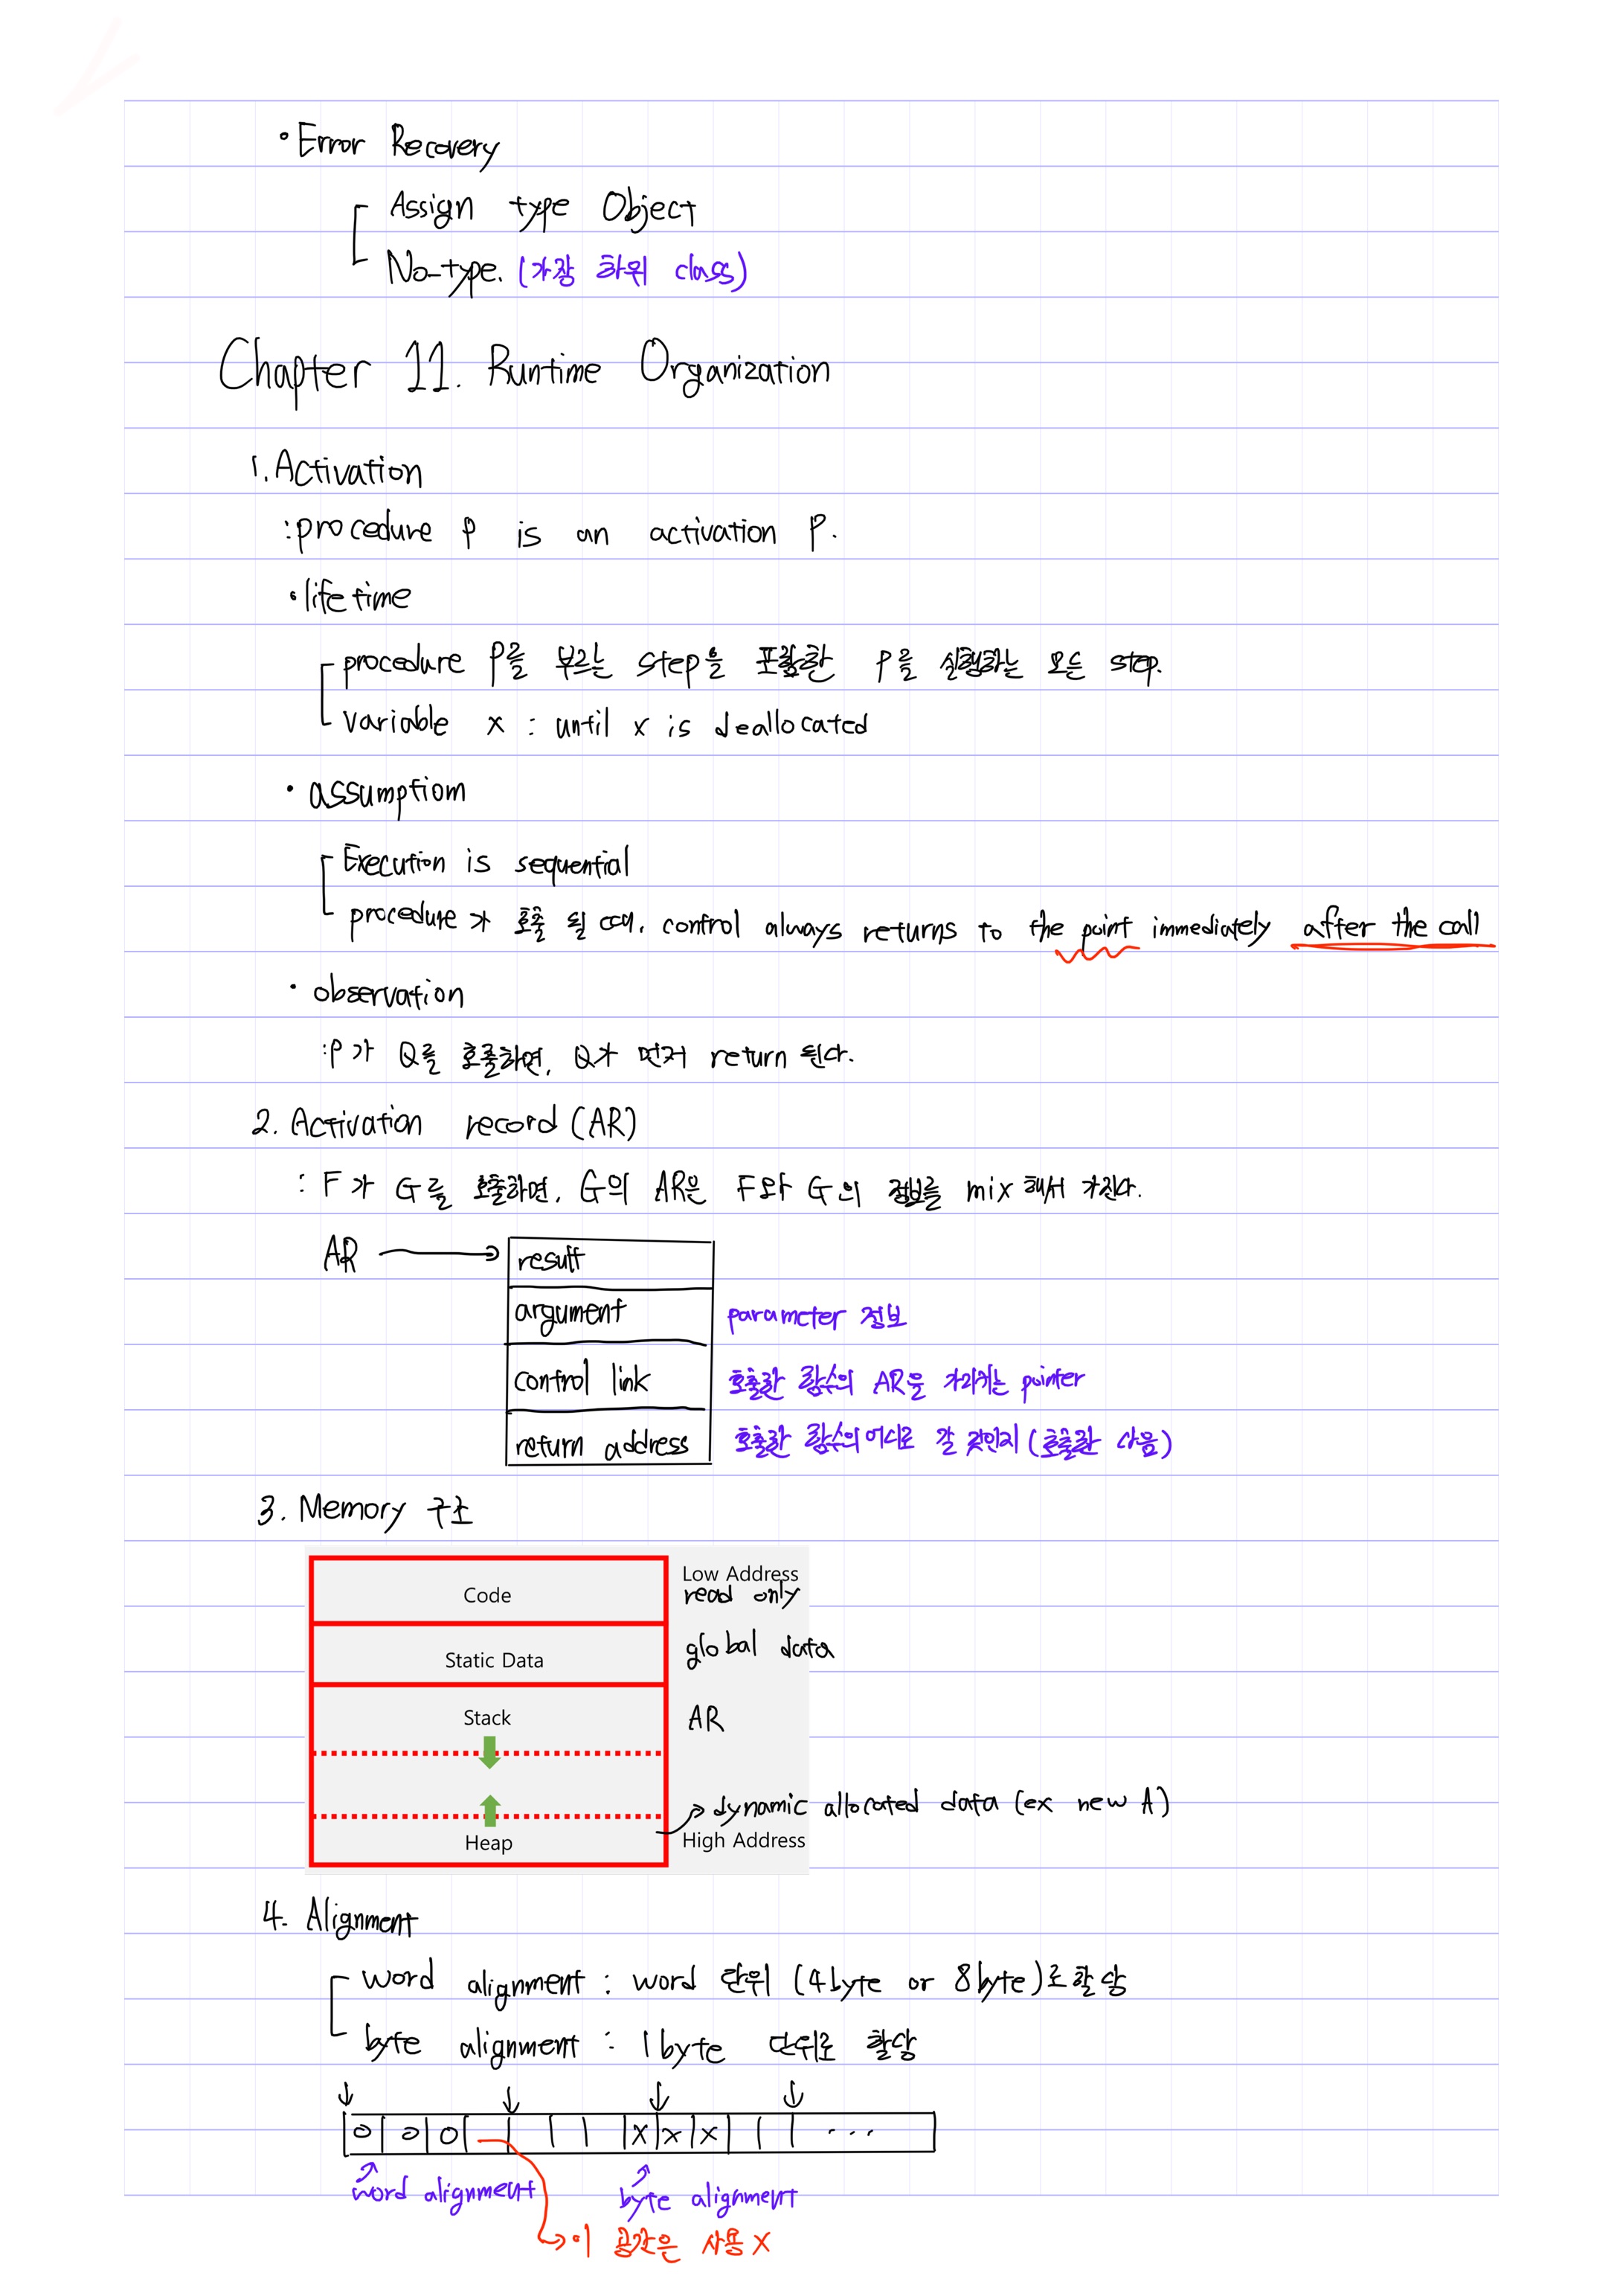 • Error Recovery
Assign type Object
No-type. (가장 하위 class)
Chapter 11. Runtime Organization
1. Activation
: procedure P is an activation P.
• lifetime
procedure P를 부르는 step을 포함한 P를 실행하는 모든 step.
variable x : until x is deallocated
• assumption
Execution is sequential
procedure가 호출 될 때, control always returns to the point immediately after the call
• observation
: P가 Q를 호출하면, Q가 먼저 return 된다.
2. Activation record (AR)
: F가 G를 호출하면, G의 AR은 F와 G의 정보를 mix 해서 가진다.
AR
result
argument parameter 정보
control link 호출한 함수의 AR을 가리키는 pointer
return address 호출한 함수의 어디로 갈 것인지 (호출한 다음)
3. Memory 구조
Code Low Address
read only
Static Data global data
Stack AR
dynamic allocated data (ex new A)
Heap High Address
4. Alignment
word alignment : word 단위 (4byte or 8byte)로 할당
byte alignment : 1byte 단위로 할당
o o o x x x ...
word alignment byte alignment
이 공간은 사용 X